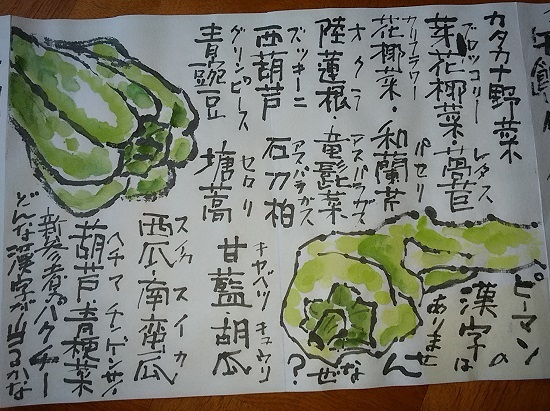 カタカナ野菜
ブロッコリー レタス
芽花椰菜・萵苣
カリフラワー パセリ
花椰菜・和蘭芹
オクラ アスパラガス
陸蓮根・竜髭菜
ズッキーニ アスパラガス
西葫芦 石刀柏
グリンピース セロリ
青豌豆 塘蒿
キャベツ キュウリ
甘藍・胡瓜
スイカ スイカ
西瓜・南蛮瓜
ヘチマ チンゲンサイ
葫芦 青梗菜
新参者のパクチー
どんな漢字が当るかな
ピーマン
の
漢字は
ありませ
ん
なぜ
?